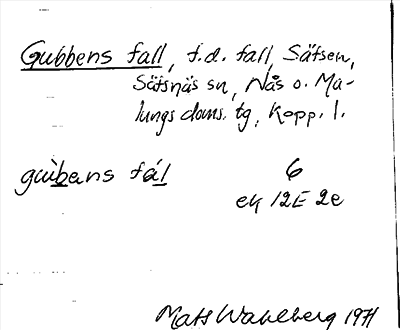 Gubbens fall, f.d. fall, Sätsen,
Sätsnäs sn, Nås o. Ma-
lungs doms. tg, Kopp. l.
gùbans fál 6
ek 12E 2e
Mats Wahlberg 1971